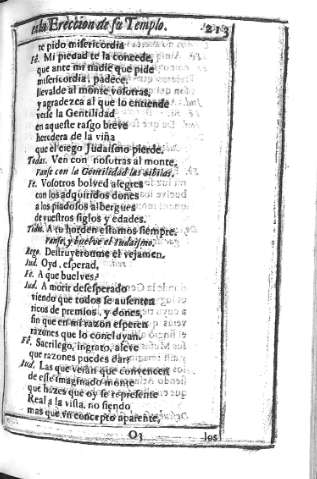 en la Ereccion de su Templo. 213
te pido misericordia
Fè. Mi piedad te la concede,
que ante mi nadie que pide
misericordia, padece.
llevalde al monte vosotras,
y agradezca al que lo entiende
verse la Gentilidad
en aqueste rasgo breve
heredera de la viña
que el ciego Judaismo pierde.
Todas. Ven con nosotras al monte.
Vanse con la Gentilidad las sibilas.
Fè. Vosotros bolved alegres
con los adquiridos dones
a los piadosos albergues
de vuestros siglos y edades.
Todos. A tu horden estamos siempre.
Vanse, y buelve el Iudaismo.
Rego. Destruyeronme el vejamen.
Iud. Oyd, esperad,
Fè. A que buelves?
Iud. A morir desesperado
viendo que todos se ausenten
ricos de premios, y dones,
sin que en mi razon esperen
razones que lo concluyan.
Fè. Sacrilego, ingrato, aleve
que razones puedes dar?
Iud. Las que veràn que convencen
de esse imaginado monte
que hazes que oy se represente
Real a la vista, no siendo
mas que vn concepto aparente,
O3 los